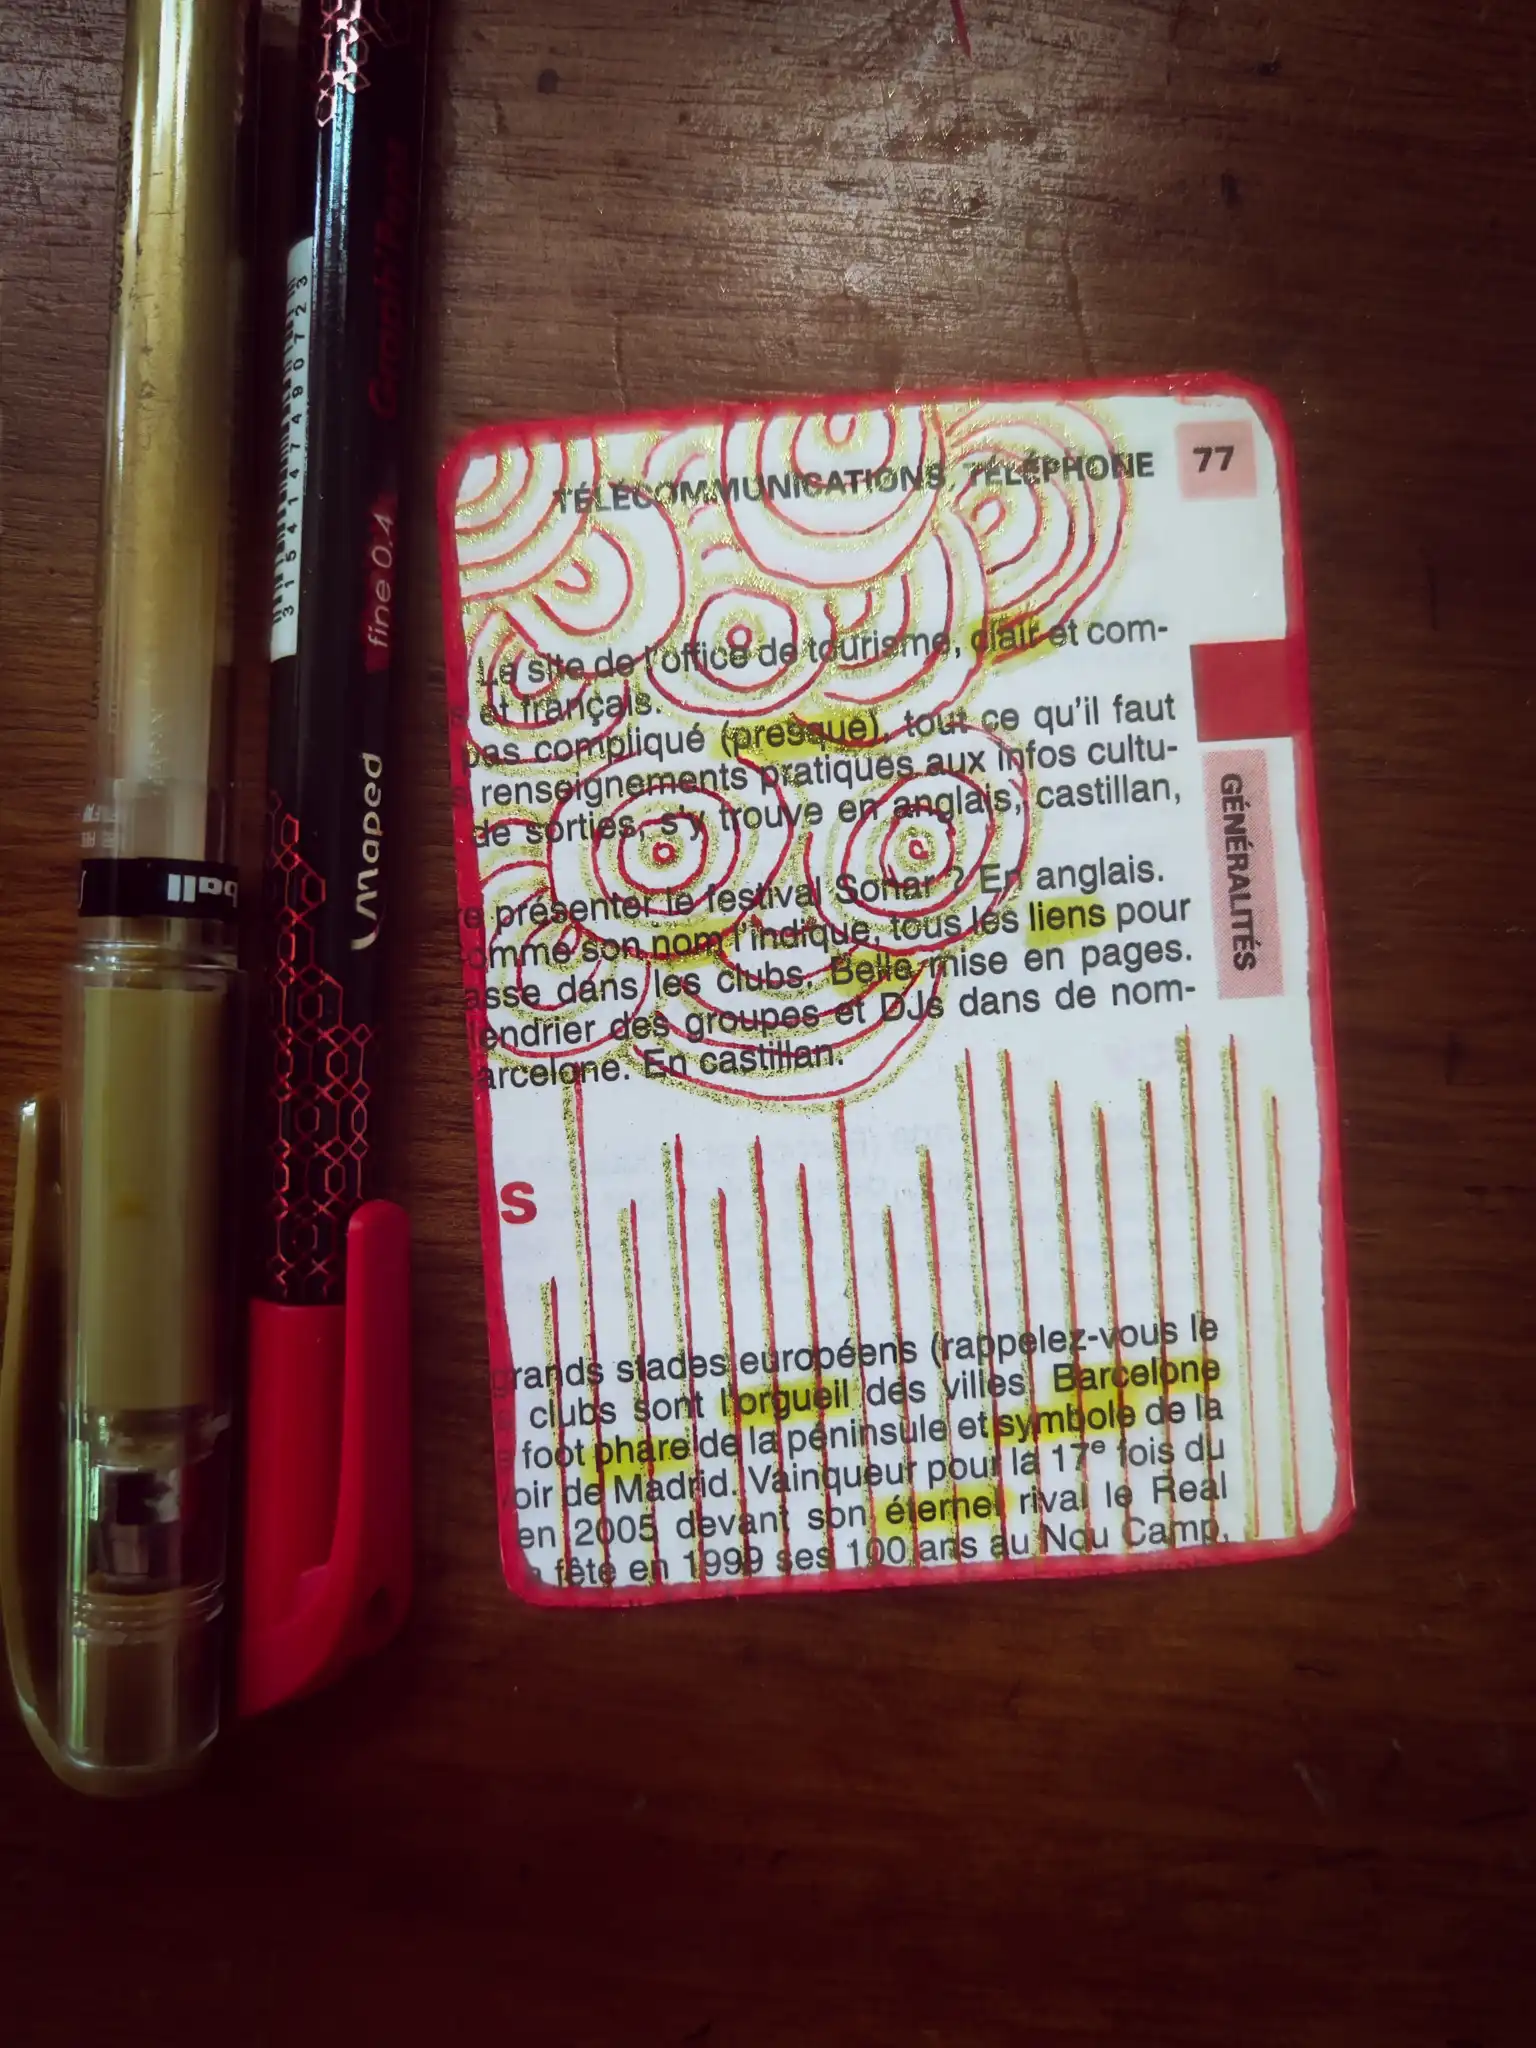 TÉLÉCOMMUNICATIONS, TÉLÉPHONE 77
Le site de l'office de tourisme, clair et com-
et français.
pas compliqué (presque), tout ce qu'il faut
renseignements pratiques aux infos cultu-
de sorties, s'y trouve en anglais, castillan,
re présenter le festival Sonar ? En anglais.
omme son nom l'indique, tous les liens pour
asse dans les clubs. Belle mise en pages.
endrier des groupes et DJs dans de nom-
arcelone. En castillan.
GÉNÉRALITÉS
S
grands stades européens (rappelez-vous le
clubs sont l'orgueil des villes Barcelone
foot phare de la péninsule et symbole de la
oir de Madrid. Vainqueur pour la 17e fois du
en 2005 devant son éternel rival le Real
a fête en 1999 ses 100 ans au Nou Camp,
Graph'Peps
fine 0.4
Maped
3 154147 490723
ball